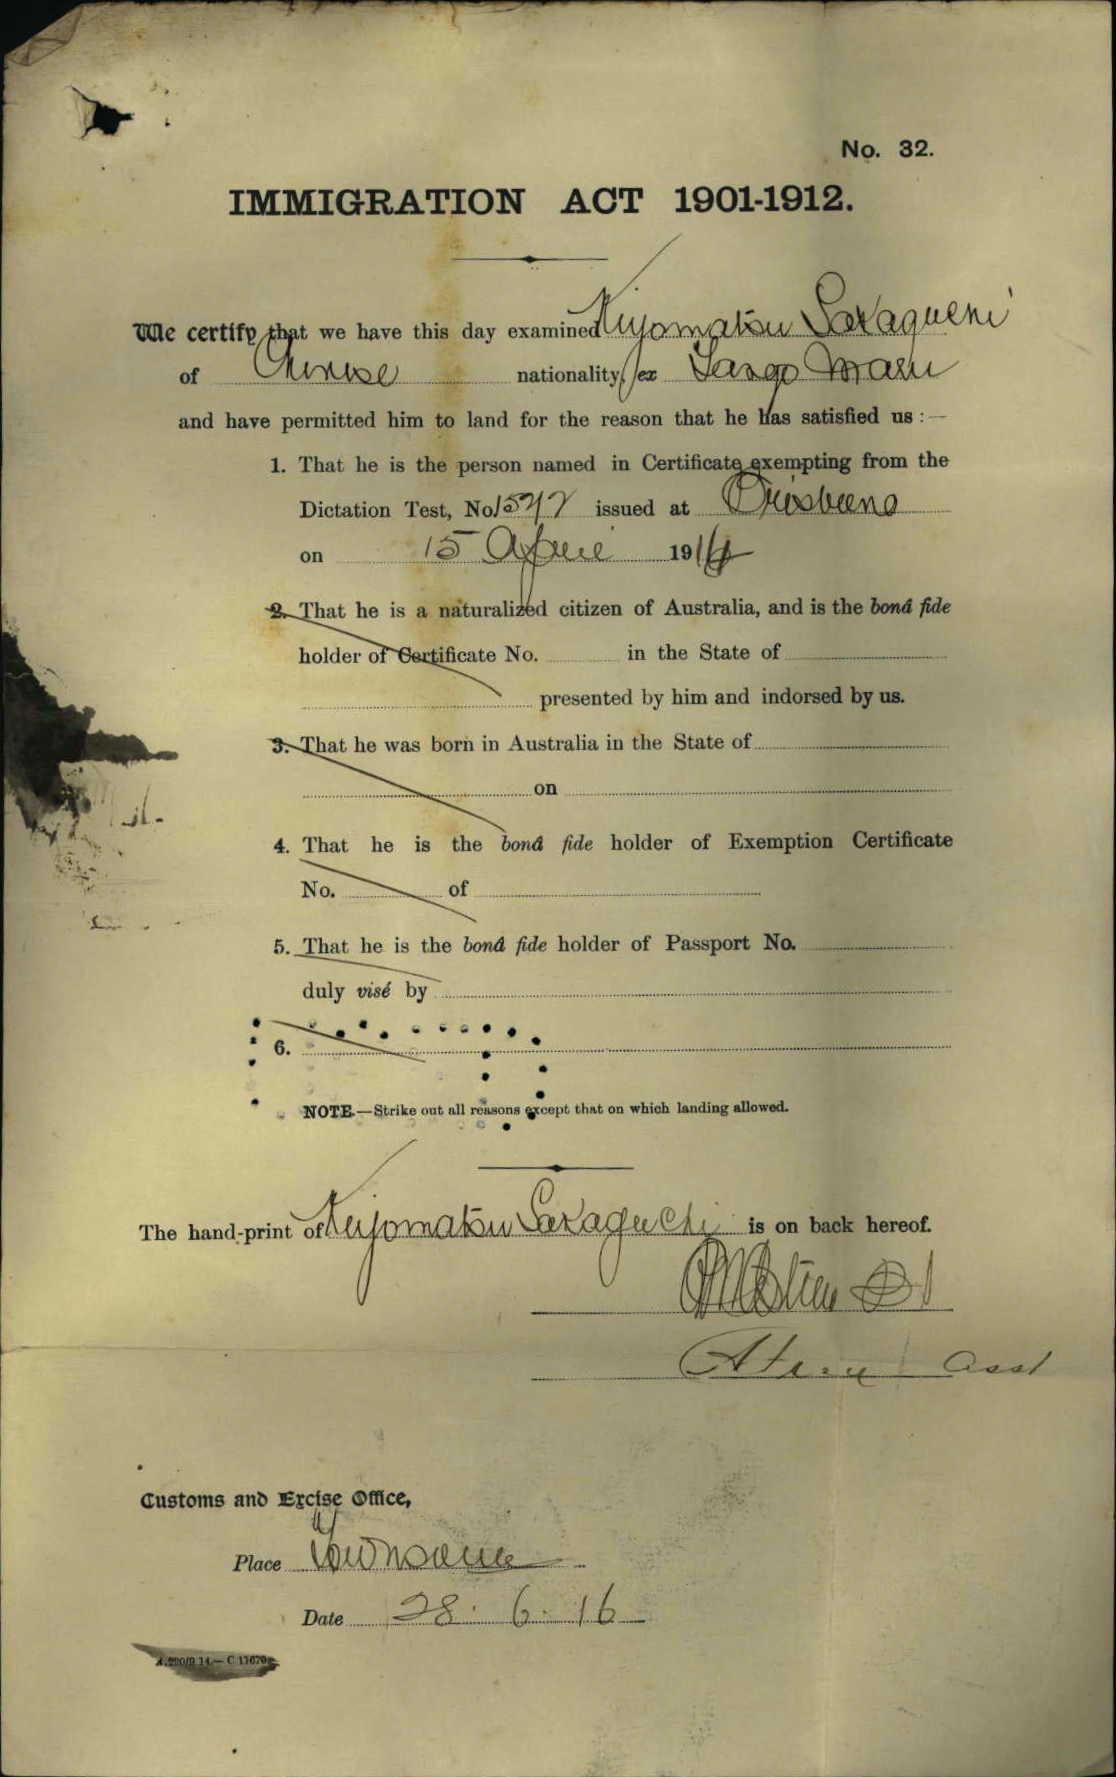 No. 32.
IMMIGRATION ACT 1901-1912.
We certify that we have this day examined Kiyomatsu Sakaguchi
of Chinese nationality, ex Tango Maru
and have permitted him to land for the reason that he has satisfied us :—
1. That he is the person named in Certificate exempting from the
Dictation Test, No. issued at Brisbane
on 15 April 1914
2. That he is a naturalized citizen of Australia, and is the bonâ fide
holder of Certificate No. in the State of
presented by him and indorsed by us.
3. That he was born in Australia in the State of
on
4. That he is the bonâ fide holder of Exemption Certificate
No. of
5. That he is the bonâ fide holder of Passport No.
duly visé by
6.
NOTE.—Strike out all reasons except that on which landing allowed.
The hand-print of Kiyomatsu Sakaguchi is on back hereof.
Asst
Customs and Excise Office,
Place Townsville
Date 28.6.16